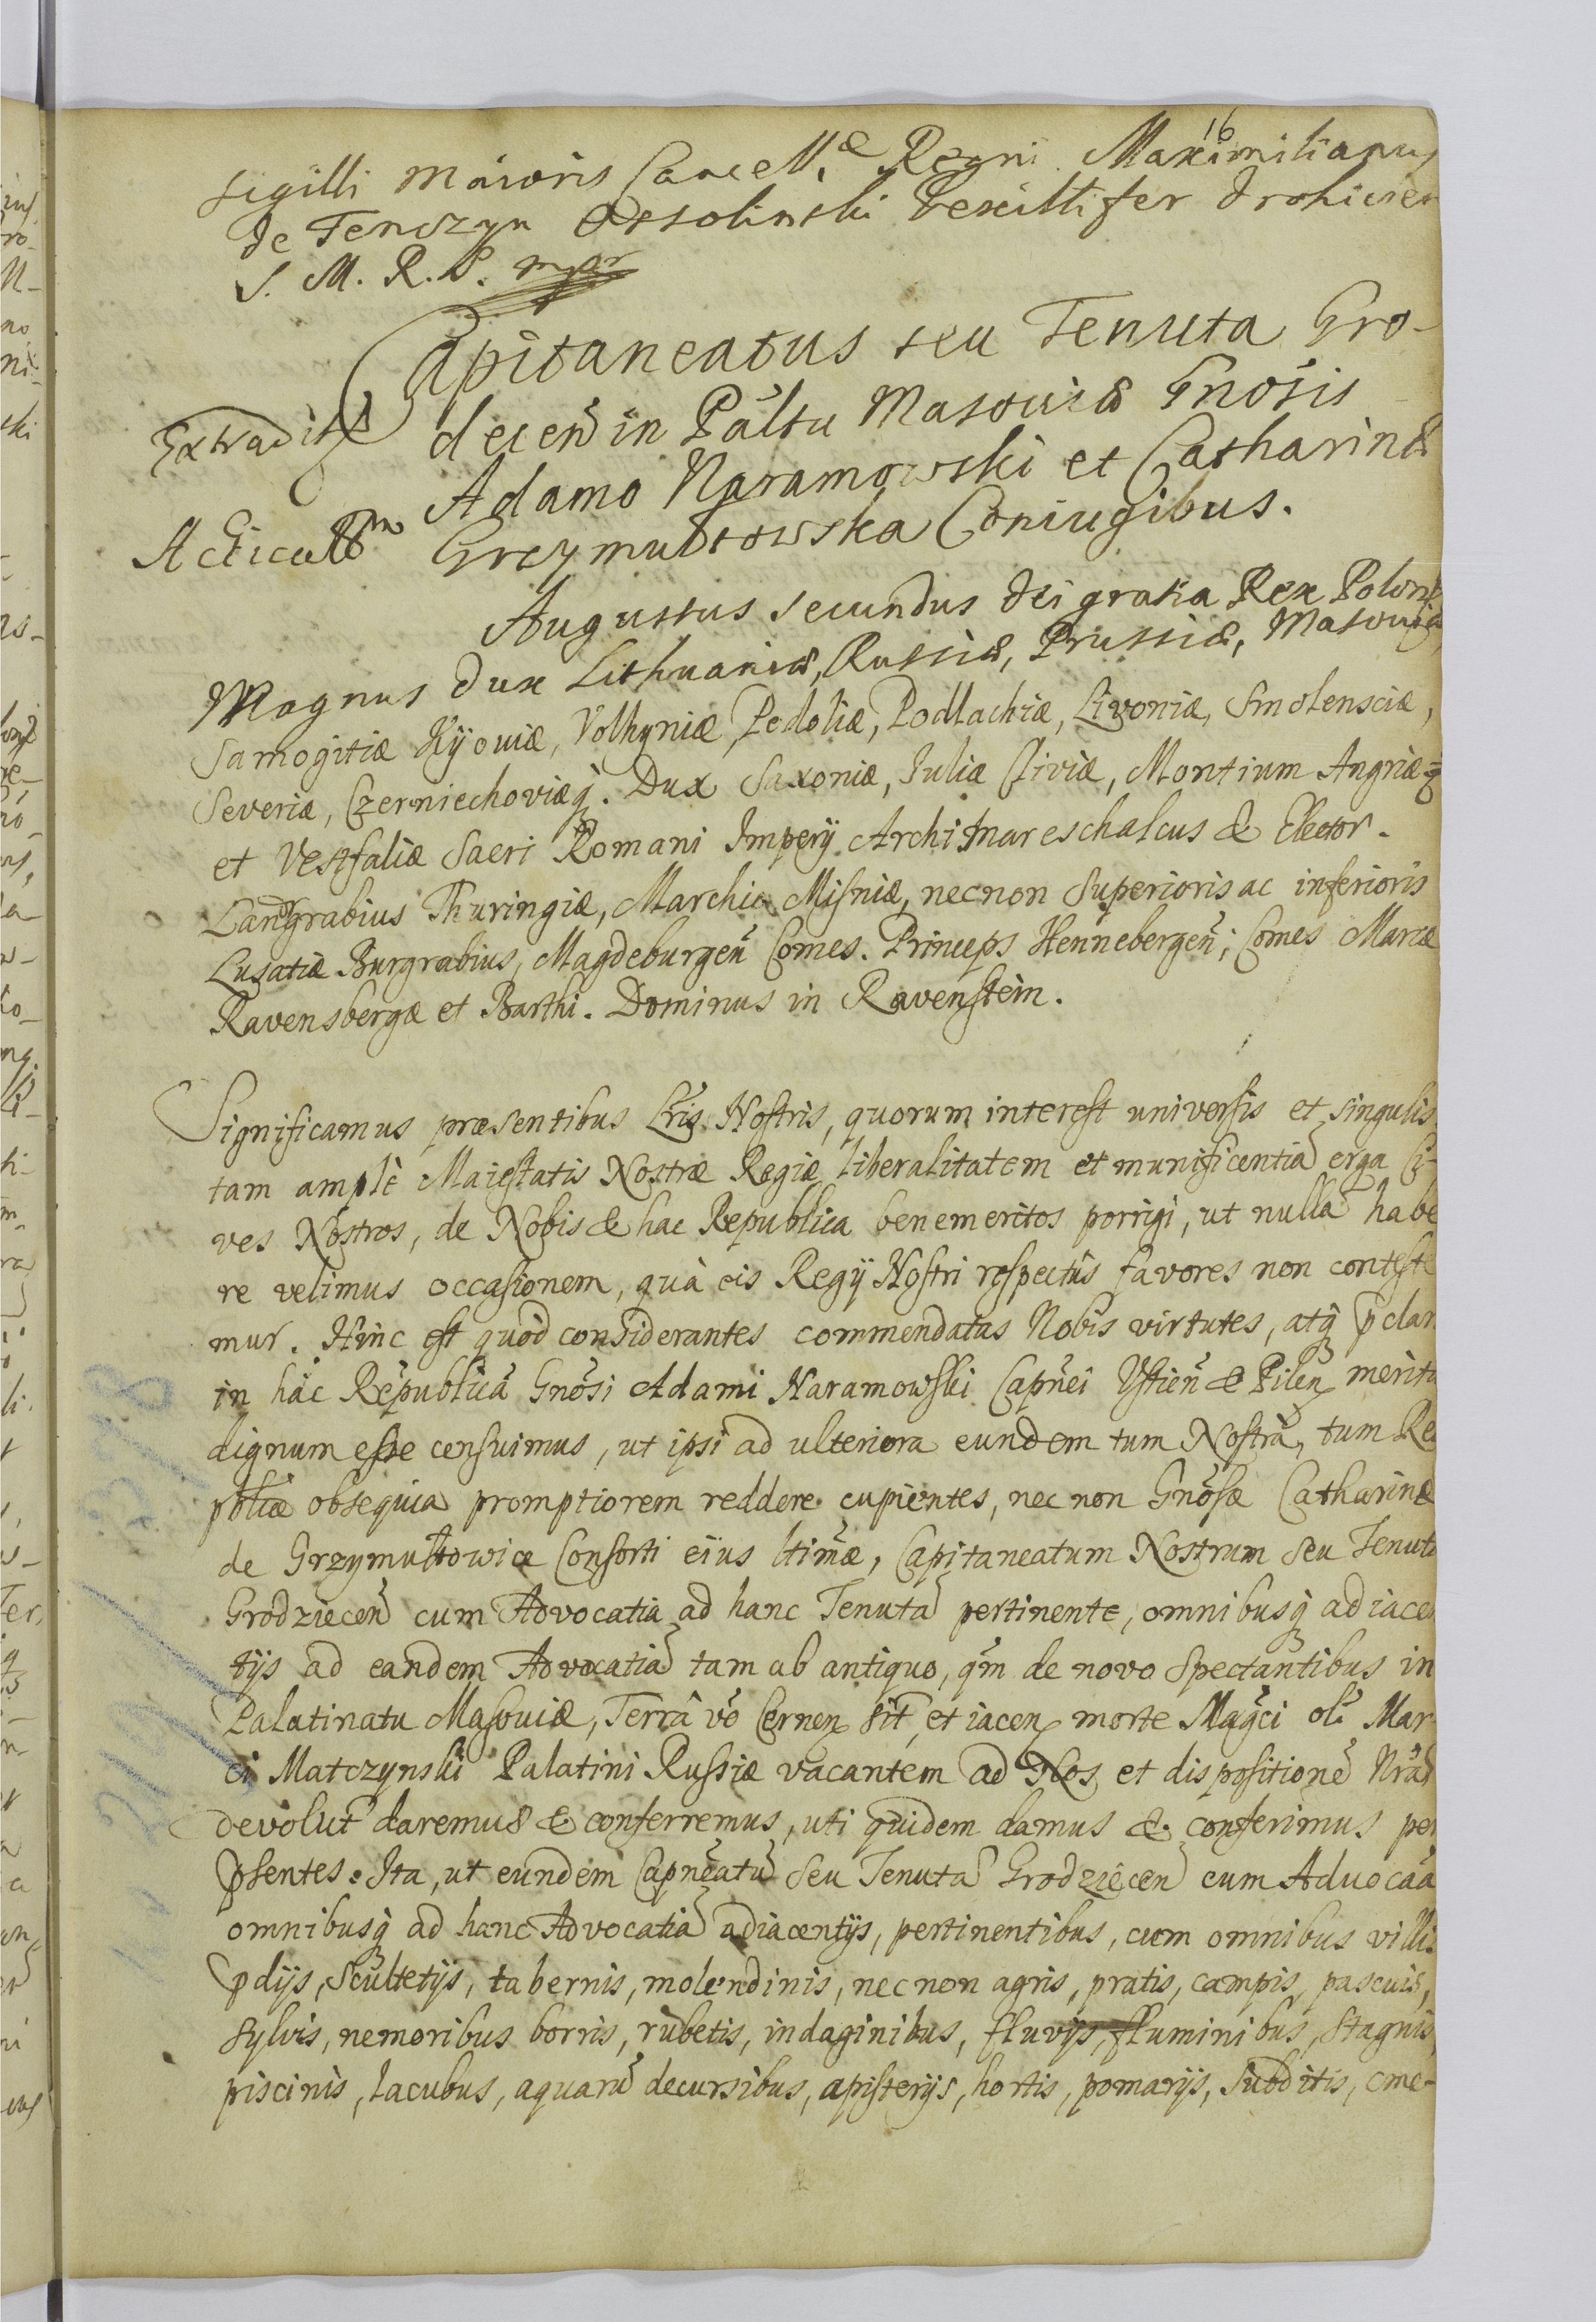 16
sigilli maioris Cancellae Regni Maximilianus
de Tenczyn Ossolinski Vexillifer Drohicien
S. M. R. S. mpr
Capitaneatus seu Tenuta Gro-
Extradit decen̄ in Pāltu Masoviæ Gnōsis
Adamo Naramowski et Catharinæ
Acticatm Grzymultowska Coniugibus.
Augustus secundus Dei gratia Rex Poloniæ
Magnus Dux Lithuaniæ, Russiæ, Prussiæ, Masouiæ
Samogitiæ Kÿouiæ, Volhyniæ, Podoliæ, Podlachiæ, Livoniæ, Smolensciæ,
Severiæ, Czerniechoviæq̨. Dux Saxoniæ, Juliæ Cliviæ, Montium Angriæ
et Vestfaliæ Sacri Romani Imperÿ Archimareschalcus & Elector.
Landgrabius Thuringiæ, Marchio Misniæ, necnon Superioris ac inferioris
Lusatiæ Burgrabius, Magdeburgen̄ Comes. Princeps Hennebergen̄; Comes Marcæ
Ravensbergæ et Barthi. Dominus in Ravenstein.
Significamus præsentibus Lr̄is Nostris, quorum interest universis et singulis
tam amplè Maiestatis Nostræ Regiæ liberalitatem et munificentiā erga Ci-
ves Nostros, de Nobis & hac Republica benemeritos porrigi, ut nullā habe
re velimus occasionem, quà eis Regÿ Nostri respectûs favores non conteste
mur. Hinc est quòd considerantes commendatas Nobis virtutes, atq̨ p̄clar
in hâc Republicâ Gnōsi Adami Naramowski Cap̄nei Ustien̄ & Pilen̄ merita
dignum esse censuimus, ut ipsi ad ulteriora eundem tum Nostra, tum Re
pb̄licæ obsequia promptiorem reddere cupientes, nec non Gnōsæ Catharinæ
de Grzymultowice Consorti eius ltimæ, Capitaneatum Nostrum seu Tenuta
Grodziecen̄ cum Advocatia ad hanc Tenutā pertinente, omnibusq̨ adiacen
tÿs ad eandem Advocatiā tam ab antiquo, qm̄ de novo Spectantibus in
Palatinatu Masouiæ, Terrâ vō Cernen̄ sit̄, et iacen̄ morte Mag̃ci ol̄ Mar
ci Matczynski Palatini Russiæ vacantem ad Nos et dispositionē Nrā
devolut̄ daremus & conferremus, uti quidem damus & conferimus per
p̄sentes. Ita, ut eundem Capn̄eatū seu Tenutā Grodziecen̄ cum Aduocaā
omnibusq̨ ad hanc Advocatiā adiacentÿs, pertinentibus, cum omnibus villi
p̄dÿs, Scultetÿs, tabernis, molendinis, nec non agris, pratis, campis, pascuis,
sylvis, nemoribus borris, rubetis, indaginibus, fluvÿs, fluminibus, stagnis,
piscinis, lacubus, aquarū decursibus, apisterÿs, hortis, pomarÿs, subditis, cme-